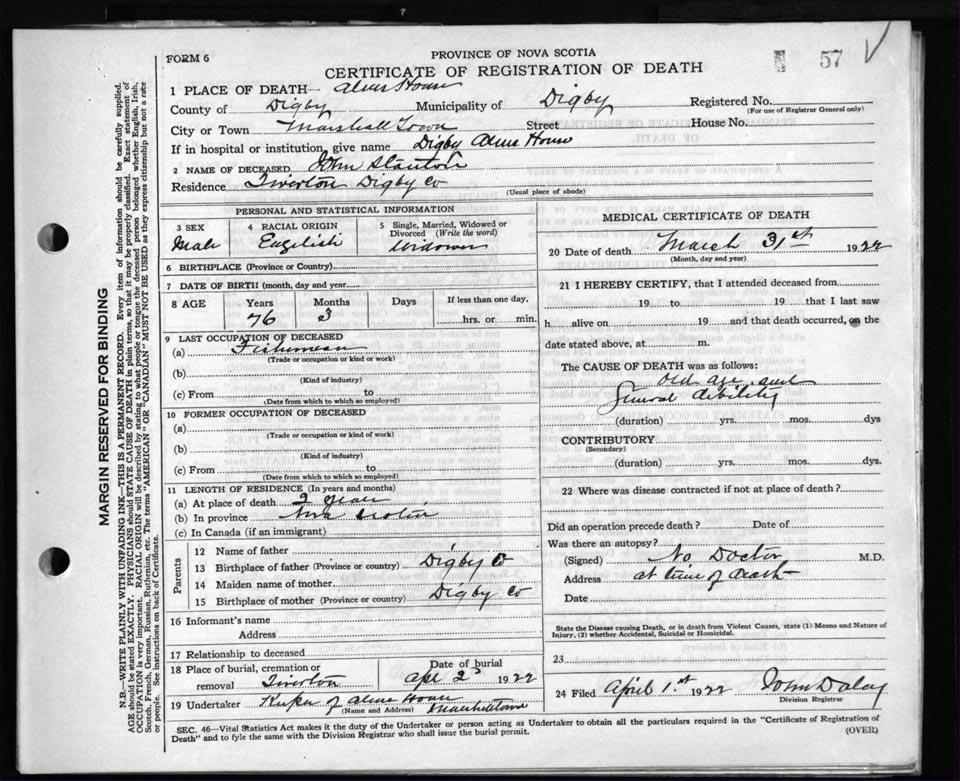 FORM 6
PROVINCE OF NOVA SCOTIA
57
CERTIFICATE OF REGISTRATION OF DEATH
1 PLACE OF DEATH— Alms House
County of Digby Municipality of Digby Registered No.
(For use of Registrar General only)
City or Town Marshall Town Street House No.
If in hospital or institution, give name Digby Alms House
2 NAME OF DECEASED John Stanton
Residence Tiverton Digby Co
(Usual place of abode)
PERSONAL AND STATISTICAL INFORMATION
3 SEX 4 RACIAL ORIGIN 5 Single, Married, Widowed or Divorced (Write the word)
Male English Widower
6 BIRTHPLACE (Province or Country)
7 DATE OF BIRTH (month, day and year)
8 AGE Years Months Days If less than one day,
76 3 hrs. or min.
9 LAST OCCUPATION OF DECEASED
(a) Fisherman
(Trade or occupation or kind or work)
(b)
(Kind of industry)
(c) From to
(Date from which to which so employed)
10 FORMER OCCUPATION OF DECEASED
(a)
(Trade or occupation or kind of work)
(b)
(Kind of industry)
(c) From to
(Date from which to which so employed)
11 LENGTH OF RESIDENCE (In years and months)
(a) At place of death 2 years
(b) In province Nova Scotia
(c) In Canada (if an immigrant)
Parents
12 Name of father
13 Birthplace of father (Province or country) Digby Co
14 Maiden name of mother
15 Birthplace of mother (Province or country) Digby Co
16 Informant's name
Address
17 Relationship to deceased
18 Place of burial, cremation or Date of burial
removal Tiverton Apr 2 1922
19 Undertaker Keeper of Alms House Marshalltown
(Name and Address)
MEDICAL CERTIFICATE OF DEATH
20 Date of death March 31st 1922
(Month, day and year)
21 I HEREBY CERTIFY, that I attended deceased from
19 to 19 that I last saw
h alive on 19 and that death occurred, on the
date stated above, at m.
The CAUSE OF DEATH was as follows:
Old age and
General debility
(duration) yrs. mos. dys
CONTRIBUTORY
(Secondary)
(duration) yrs. mos. dys.
22 Where was disease contracted if not at place of death?
Did an operation precede death? Date of
Was there an autopsy?
(Signed) No Doctor M.D.
Address at time of Death
Date
State the Disease causing Death, or in death from Violent Causes, state (1) Menns and Nature of
Injury, (2) whether Accidental, Suicidal or Homicidal.
23
24 Filed April 1st 1922 John Daley
Division Registrar
SEC. 46—Vital Statistics Act makes it the duty of the Undertaker or person acting as Undertaker to obtain all the particulars required in the "Certificate of Registration of
Death" and to fyle the same with the Division Registrar who shall issue the burial permit. (OVER)
MARGIN RESERVED FOR BINDING
N.B.—WRITE PLAINLY WITH UNFADING INK—THIS IS A PERMANENT RECORD. Every item of information should be carefully supplied.
AGE should be stated EXACTLY. PHYSICIANS should STATE CAUSE OF DEATH in plain terms, so that it may be properly classified. Exact statement of
OCCUPATION is very important. RACIAL ORIGIN will be described by stating to what people or tongue the deceased person belonged whether English, Irish,
Scotch, French, German, Russian, Ruthenian, etc. The terms "AMERICAN" OR "CANADIAN" MUST NOT BE USED as they express citizenship but not a rate
or people. See instructions on back of Certificate.